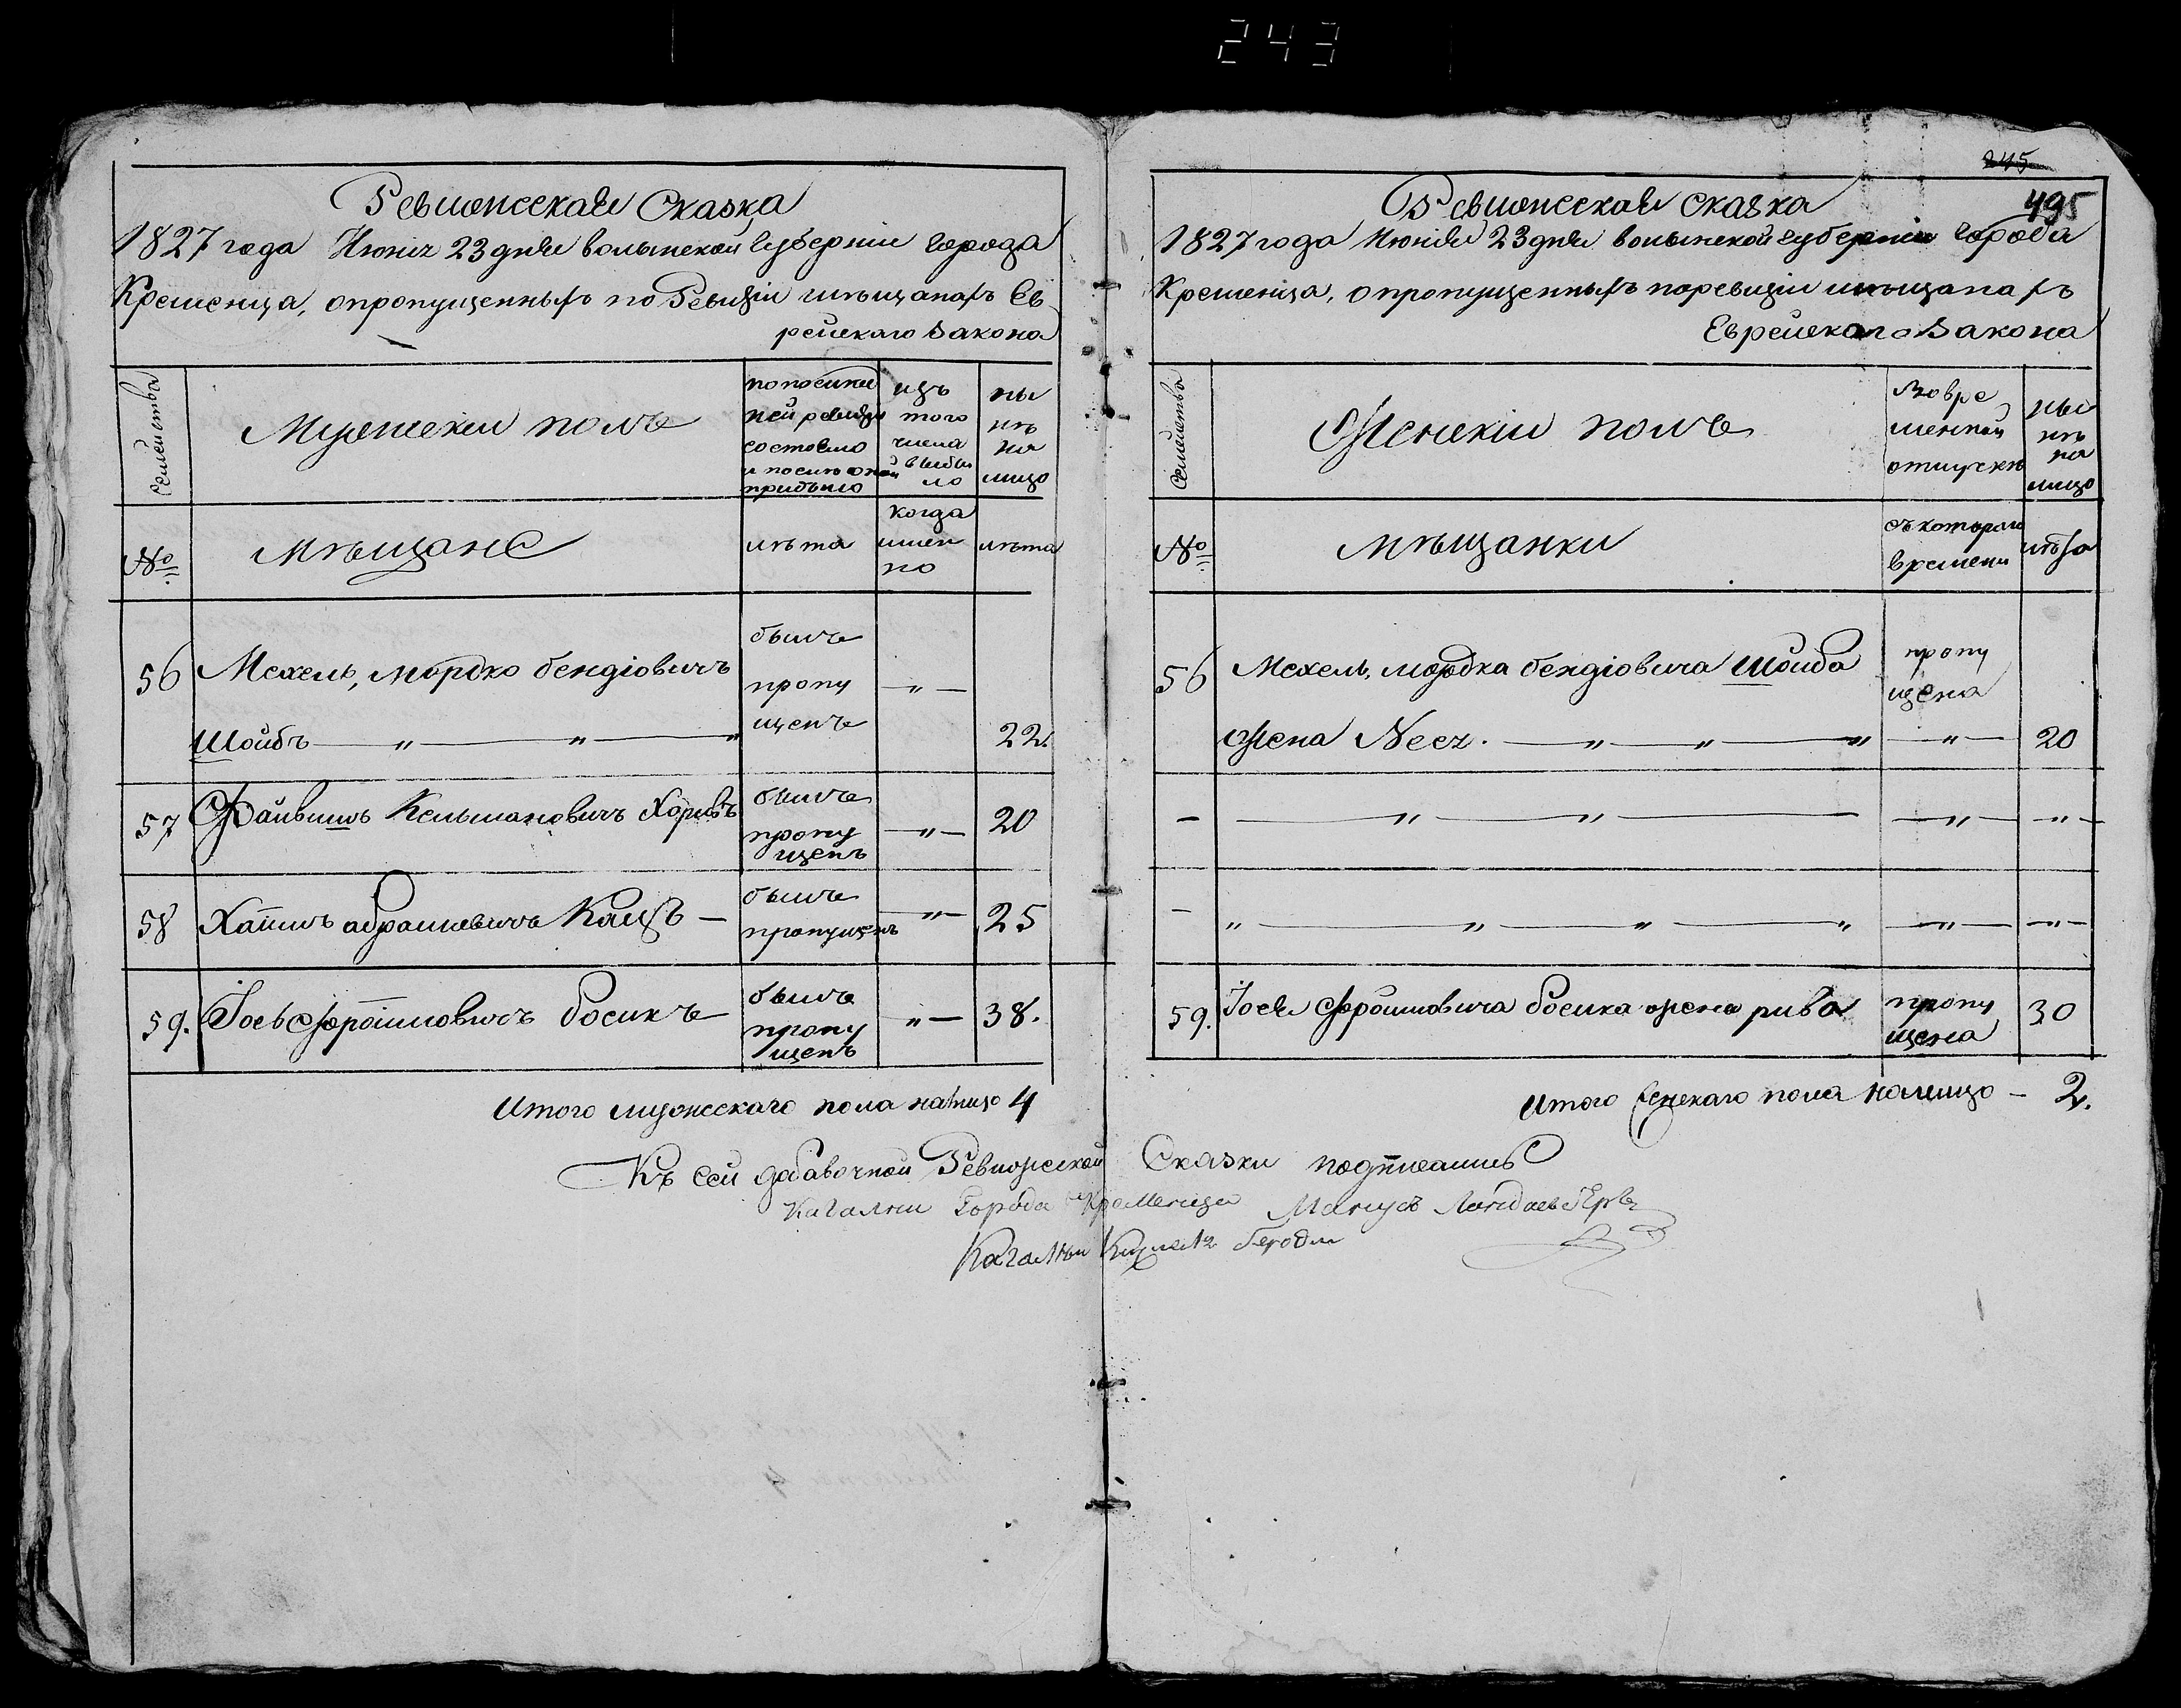 243
Ревижсская Сказка
1827 года Июня 23 дня волынской губерніи города
Кременца, опропущенныхъ по Ревизіи мѣщанахъ Ев
рейскаго Закона
семейства
Мужскии полъ
попослѣд
ней ревизіи
состояло
и послѣ оной
прибыло
изъ
того
числа
выбы
ло
ны
нѣ
на
лицо
№
мѣщане
лѣта
когда
имен
но
лѣта
56 Мехель, мордко бендіовичъ
Шойбъ — „ — „ — „
былъ
пропу
щенъ
— „ — 22.
57 Файвишъ Кельмановичъ Хоривъ
былъ
пропу
щенъ
— „ — 20
58 абрамовичъ Кацъ —
былъ
пропущенъ
— „ — 25
59. Іось Босикъ
былъ
пропу
щенъ
„ — 38.
Итого мужескаго пола налицо 4
245
495
Ревижсская сказка
1827 года Июня 23 дня волынской губерніи города
Кременца, опропущенныхъ поревизіи мѣщанахъ
Еврейскаго Закона
семейства
Женскіи полъ
Вовре
менной
отлучкѣ
ны
нѣ
на
лицо
№
мѣщанки
съкотораго
времени
лѣта
56 Мехель, мордка бендіовича Шойба
жена Нися. — „ — „ — „
пропу
щена
— „ — 20
— — „ — „ — — „ — — „ —
— „ — „ — „ — „ — „ — — „ —
59. Іося Босика жена рива
пропу
щена
30
Итого женскаго пола налицо — 2.
Къ сей добавочной Ревижской Сказки подписались
Кагални Города Кременца Манусъ
Кагалны